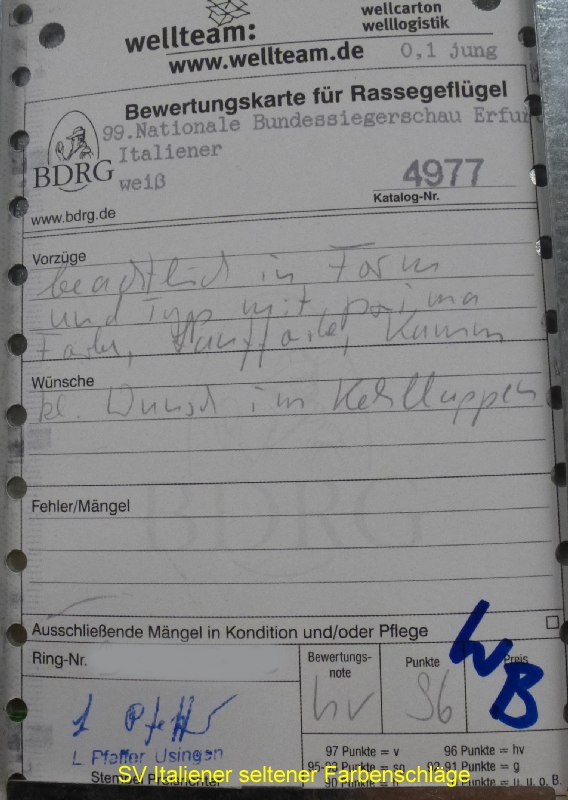 wellcarton
wellteam: welllogistik
www.wellteam.de 0,1 jung
Bewertungskarte für Rassegeflügel
99.Nationale Bundessiegerschau Erfur
Italiener
BDRG weiß 4977
Katalog-Nr.
www.bdrg.de
Vorzüge
beachtlich in Form
und Typ mit prima
Farbe, Lauffarbe, Kamm
Wünsche
kl. Wunsch im Kehllappen
BDRG
Fehler/Mängel
Ausschließende Mängel in Kondition und/oder Pflege
Ring-Nr. Bewertungs-note Punkte Preis
hv 96 WB
L Pfeffer
L Pfeffer Usingen
97 Punkte = v 96 Punkte = hv
Punkte = sg 91 Punkte = g
90 Punkte = Punkte = u, o. B.
Stempel Preisrichter
SV Italiener seltener Farbenschläge